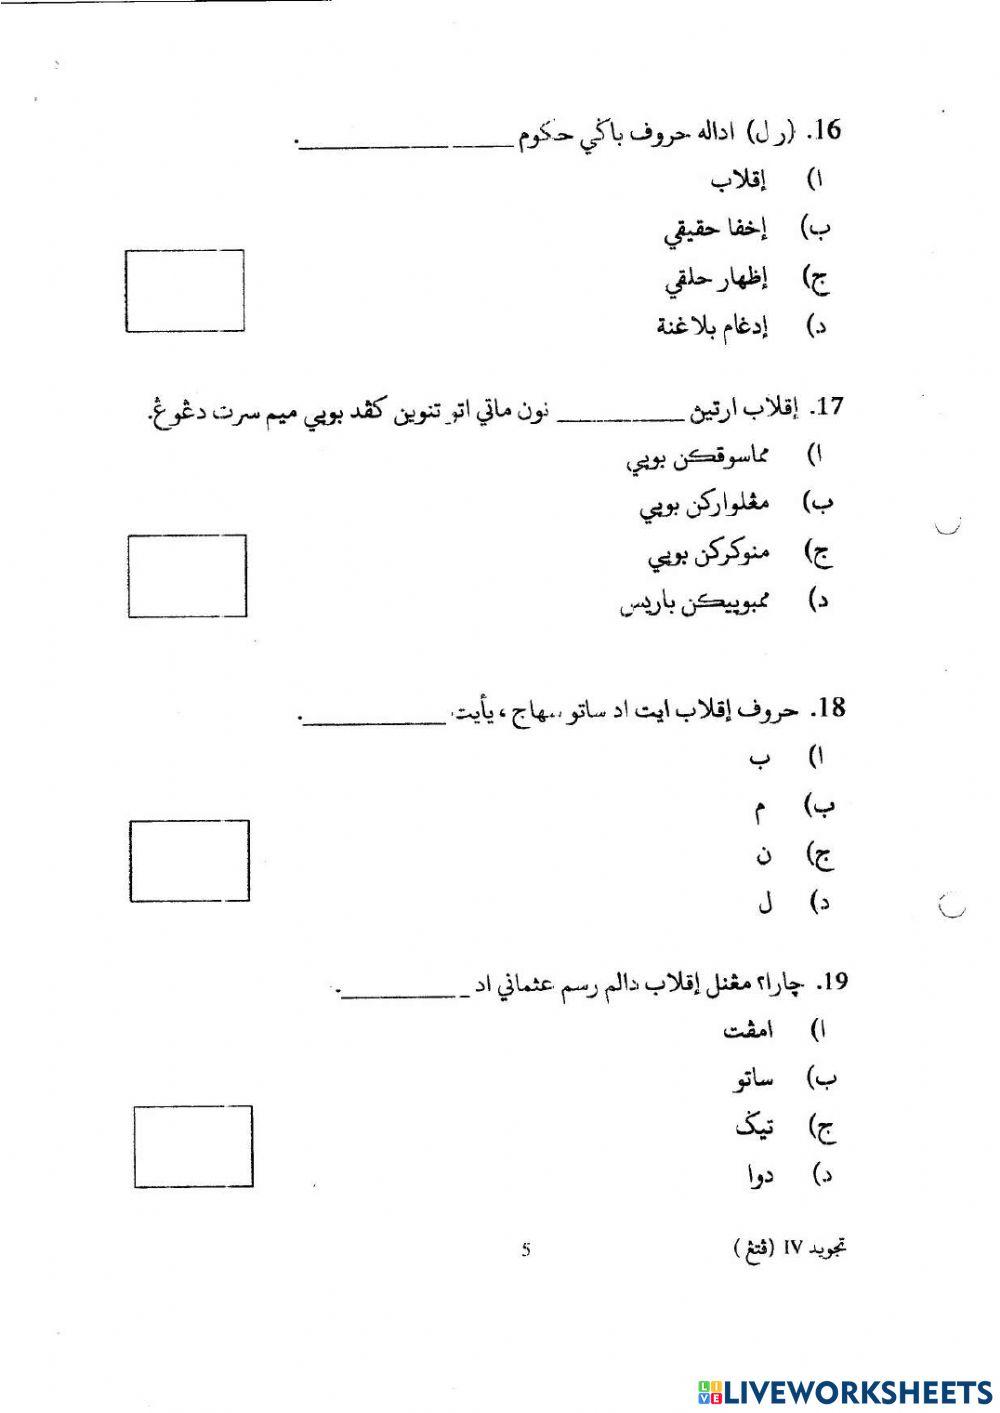 16. (ر ل) اداله حروف باݢي حكوم ــــــــــــ.
ا) إقلاب
ب) إخفا حقيقي
ج) إظهار حلقي
د) إدغام بلاغنة
17. إقلاب ارتيڽ ــــــــــــ نون ماتي اتو تنوين كڤد بوڽي ميم سرت دڠوڠ.
ا) مماسوقكن بوڽي
ب) مڠلواركن بوڽي
ج) منوكركن بوڽي
د) ممبوڽيكن باريس
18. حروف إقلاب ايت اد ساتو سهاج، يأيت ــــــــــــ.
ا) ب
ب) م
ج) ن
د) ل
19. چارا٢ مڠنل إقلاب دالم رسم عثماني اد ــــــــــــ.
ا) امڤت
ب) ساتو
ج) تيݢ
د) دوا
تجويد IV (ڤتڠ) 5
LIVEWORKSHEETS